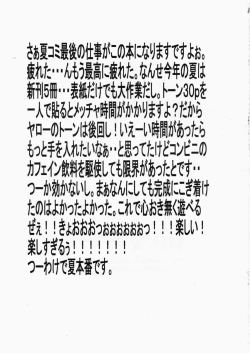 さぁ夏コミ最後の仕事がこの本になりますですよぉ。
疲れた・・・んもう最高に疲れた。なんせ今年の夏は
新刊5冊・・・表紙だけでも大作業だし。トーン30pを
一人で貼るとメッチャ時間がかかりますよ？だから
ヤローのトーンは後回し！いえーい時間があったら
もっと手を入れたいなぁ・・・と思ってたけどコンビニの
カフェイン飲料を駆使しても限界があったとです・・・
つーか効かないし。まぁなんにしても完成にこぎ着け
たのはよかったよかった。これで心おき無く遊べる
ぜぇ！！きょおおおっぉぉぉぉぉぉっ！！！楽しい！
楽しすぎるぅ！！！！！！！
つーわけで夏本番です。